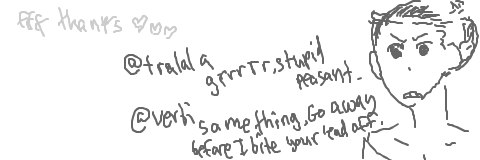 fff thanks ♡♡♡
@tralala
grrrrr, stupid
peasant.
@verti
something, Go away
before I bite your head off.